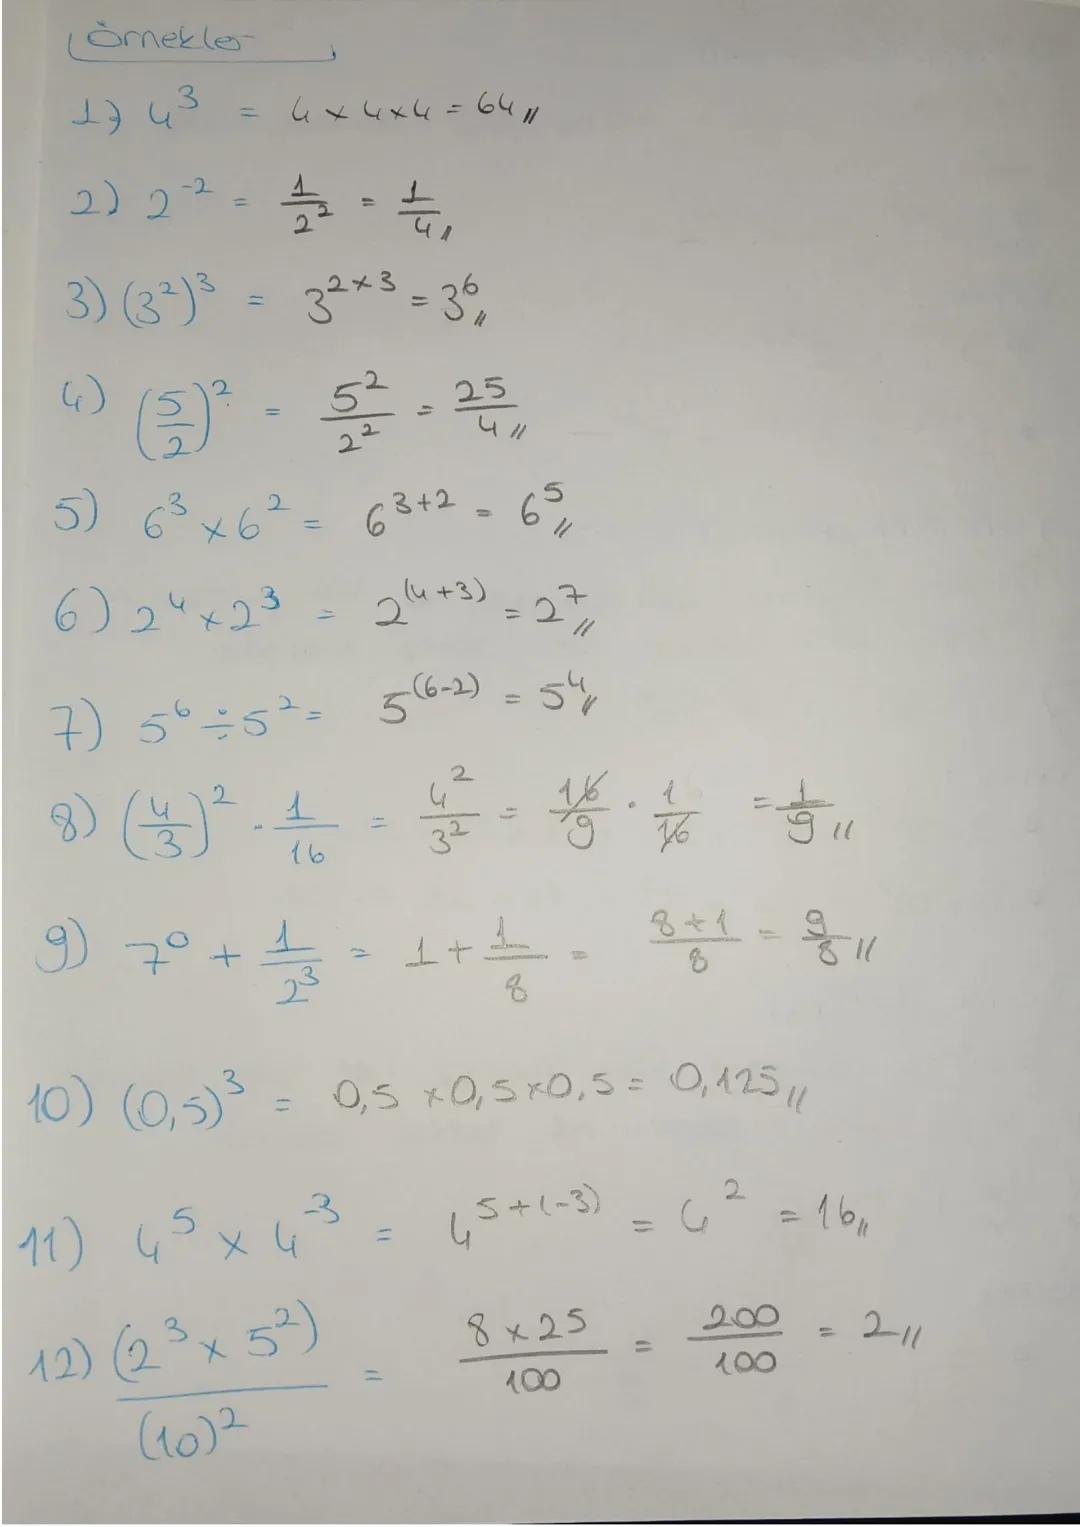 Örnekler
1) 4³ = 4 x 4 x 4 = 64 //
2) 2⁻² = 1/2² = 1/4 //
3) (3²)³ = 3²ˣ³ = 3⁶ //
4) (5/2)² = 5²/2² = 25/4 //
5) 6³ x 6² = 6³⁺² = 6⁵ //
6) 2⁴ x 2³ = 2⁽⁴⁺³⁾ = 2⁷ //
7) 5⁶ ÷ 5² = 5⁽⁶⁻²⁾ = 5⁴ //
8) (4/3)² . 1/16 = 4²/3² = 16/9 . 1/16 = 1/9 //
9) 7⁰ + 1/2³ = 1 + 1/8 = 8+1/8 = 9/8 //
10) (0,5)³ = 0,5 x 0,5 x 0,5 = 0,125 //
11) 4⁵ x 4⁻³ = 4⁵⁺⁽⁻³⁾ = 4² = 16 //
12) (2³ x 5²)/(10)² = 8 x 25/100 = 200/100 = 2 //